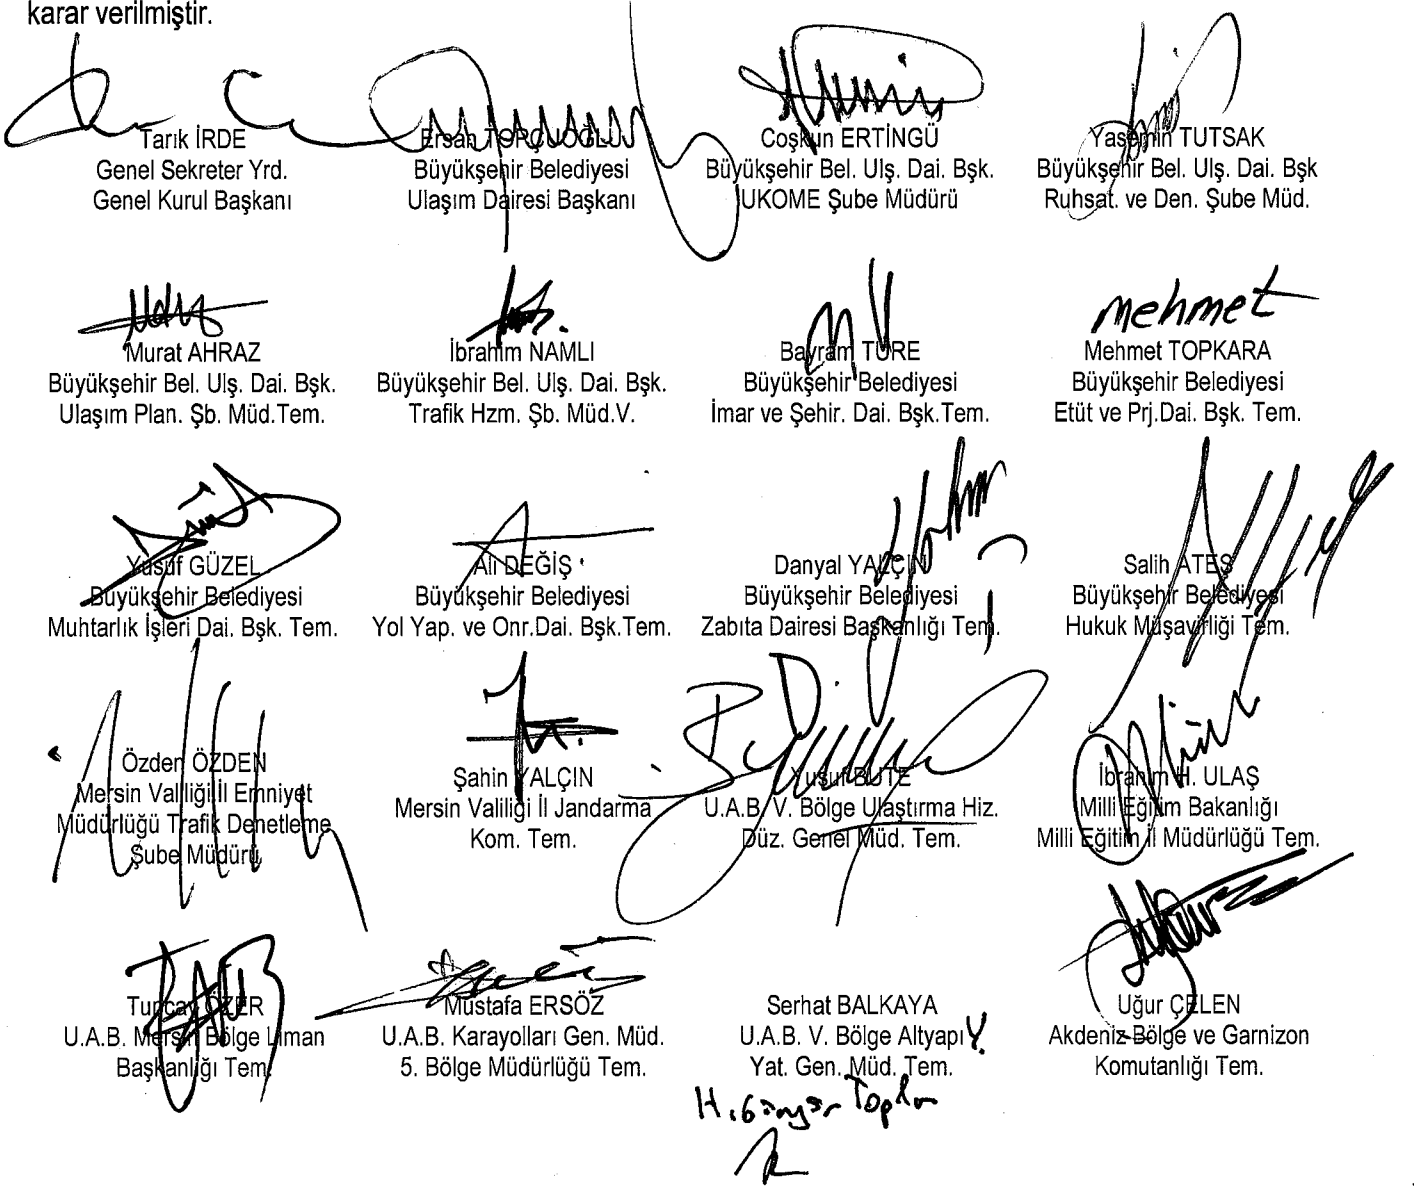 karar verilmiştir.
Tarık İRDE
Genel Sekreter Yrd.
Genel Kurul Başkanı
Ersan TORÇUOĞLU
Büyükşehir Belediyesi
Ulaşım Dairesi Başkanı
Coşkun ERTİNGÜ
Büyükşehir Bel. Ulş. Dai. Bşk.
UKOME Şube Müdürü
Yasemin TUTSAK
Büyükşehir Bel. Ulş. Dai. Bşk
Ruhsat. ve Den. Şube Müd.
Murat AHRAZ
Büyükşehir Bel. Ulş. Dai. Bşk.
Ulaşım Plan. Şb. Müd.Tem.
İbrahim NAMLI
Büyükşehir Bel. Ulş. Dai. Bşk.
Trafik Hzm. Şb. Müd.V.
Bayram TÜRE
Büyükşehir Belediyesi
İmar ve Şehir. Dai. Bşk.Tem.
mehmet
Mehmet TOPKARA
Büyükşehir Belediyesi
Etüt ve Prj.Dai. Bşk. Tem.
Yusuf GÜZEL
Büyükşehir Belediyesi
Muhtarlık İşleri Dai. Bşk. Tem.
Ali DEĞİŞ
Büyükşehir Belediyesi
Yol Yap. ve Onr.Dai. Bşk.Tem.
Danyal YALÇIN
Büyükşehir Belediyesi
Zabıta Dairesi Başkanlığı Tem.
Salih ATEŞ
Büyükşehir Belediyesi
Hukuk Müşavirliği Tem.
Özden ÖZDEN
Mersin Valiliği İl Emniyet
Müdürlüğü Trafik Denetleme
Şube Müdürü
Şahin YALÇIN
Mersin Valiliği İl Jandarma
Kom. Tem.
Yusuf BUTE
U.A.B. V. Bölge Ulaştırma Hiz.
Düz. Genel Müd. Tem.
İbrahim H. ULAŞ
Milli Eğitim Bakanlığı
Milli Eğitim İl Müdürlüğü Tem.
Tuncay ÖZER
U.A.B. Mersin Bölge Liman
Başkanlığı Tem.
Mustafa ERSÖZ
U.A.B. Karayolları Gen. Müd.
5. Bölge Müdürlüğü Tem.
Serhat BALKAYA
U.A.B. V. Bölge Altyapı Y.
Yat. Gen. Müd. Tem.
Uğur ÇELEN
Akdeniz Bölge ve Garnizon
Komutanlığı Tem.